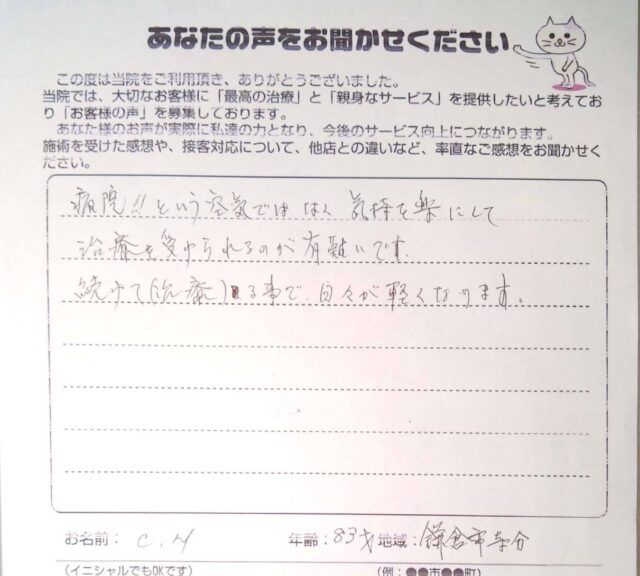 あなたの声をお聞かせください
この度は当院をご利用頂き、ありがとうございました。
当院では、大切なお客様に「最高の治療」と「親身なサービス」を提供したいと考えてお
り「お客様の声」を募集しております。
あなた様のお声が実際に私達の力となり、今後のサービス向上につながります。
施術を受けた感想や、接客対応について、他店との違いなど、率直なご感想をお聞かせく
ださい。
病院!!という空気ではなく 気持を楽にして
治療を受けられるのが有難いです。
続けて(治療)する事で、日々が軽くなります。
お名前： C.H 年齢：83才 地域：鎌倉市
(イニシャルでもOKです) (例：●●市●●町)